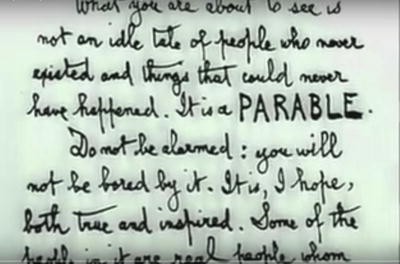 What you are about to see is
not an idle tale of people who never
existed and things that could never
have happened. It is a PARABLE.
Do not be alarmed: you will
not be bored by it. It is, I hope,
both true and inspired. Some of the
people in it are real people whom